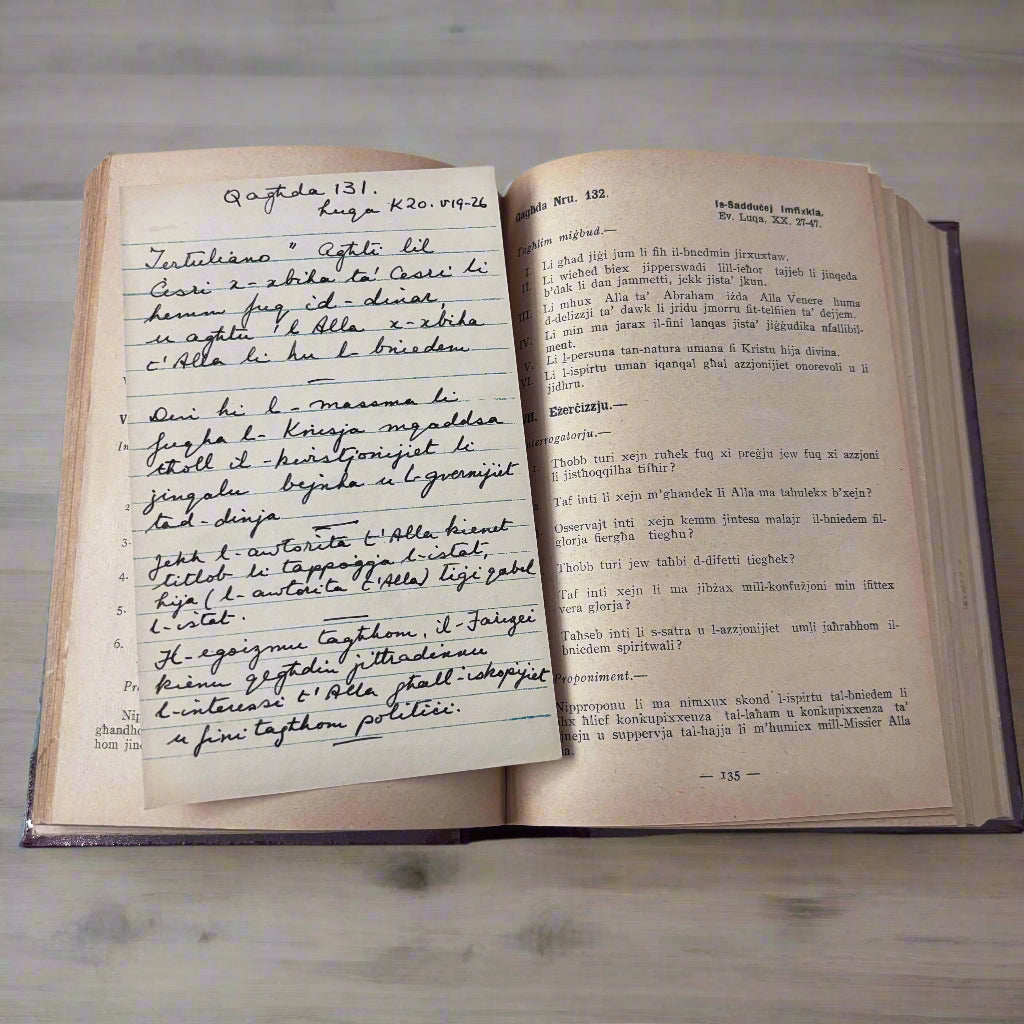 Qagħda 131.
Luqa K20. v19-26
Tertuliano " Agħti lil
Cesri x-xbiha ta' Cesri li
hemm fuq id-dinar,
u agħtu 'l Alla x-xbiha
t'Alla li hu l-bniedem
Din hi l-massma li
fuqha l-Knisja mqaddsa
tħoll il-kwistjonijiet li
jinqalu bejnha u l-gvernijiet
tad-dinja
Jekk l-awtorita t'Alla kienet
titlob li tappoġġa l-istat,
hija (l-awtorita t'Alla) tiġi qabel
l-istat.
Il-egoizmu tagħhom, il-Fariżej
kienu qegħdin jittradixxu
l-interessi t'Alla għall-iskopijiet
u fini tagħhom politiċi.
V
In
2
3.
4.
5.
6.
Pr
Nip
għandho
hom jine
Qagħda Nru. 132.
Is-Sadduċej Imfixkla.
Ev. Luqa, XX. 27-47.
Tagħlim miġbud.—
I. Li għad jiġi jum li fih il-bnedmin jirxuxtaw.
II. Li wieħed biex jipperswadi lill-ieħor tajjeb li jinqeda
b'dak li dan jammetti, jekk jista' jkun.
III. Li mhux Alla ta' Abraham iżda Alla Venere huma
d-delizzji ta' dawk li jridu jmorru fit-telfien ta' dejjem.
IV. Li min ma jarax il-fini lanqas jista' jiġġudika nfallibil-
ment.
V. Li l-persuna tan-natura umana fi Kristu hija divina.
VI. Li l-ispirtu uman iqanqal għal azzjonijiet onorevoli u li
jidhru.
VII. Eżerċizzju.—
nterrogatorju.—
1. Tħobb turi xejn ruħek fuq xi preġju jew fuq xi azzjoni
li jistħoqqilha tifħir?
2. Taf inti li xejn m'għandek li Alla ma taħulekx b'xejn?
Osservajt inti xejn kemm jintesa malajr il-bniedem fil-
glorja fiergħa tiegħu?
Tħobb turi jew taħbi d-difetti tiegħek?
Taf inti xejn li ma jibżax mill-konfużjoni min ifittex
vera glorja?
Taħseb inti li s-satra u l-azzjonijiet umli jaħrabhom il-
bniedem spiritwali?
Proponiment.—
Nipproponu li ma nimxux skond l-ispirtu tal-bniedem li
ħlief konkupixxenza tal-laħam u konkupixxenza ta'
jnejn u suppervja tal-ħajja li m'humiex mill-Missier Alla
— 135 —